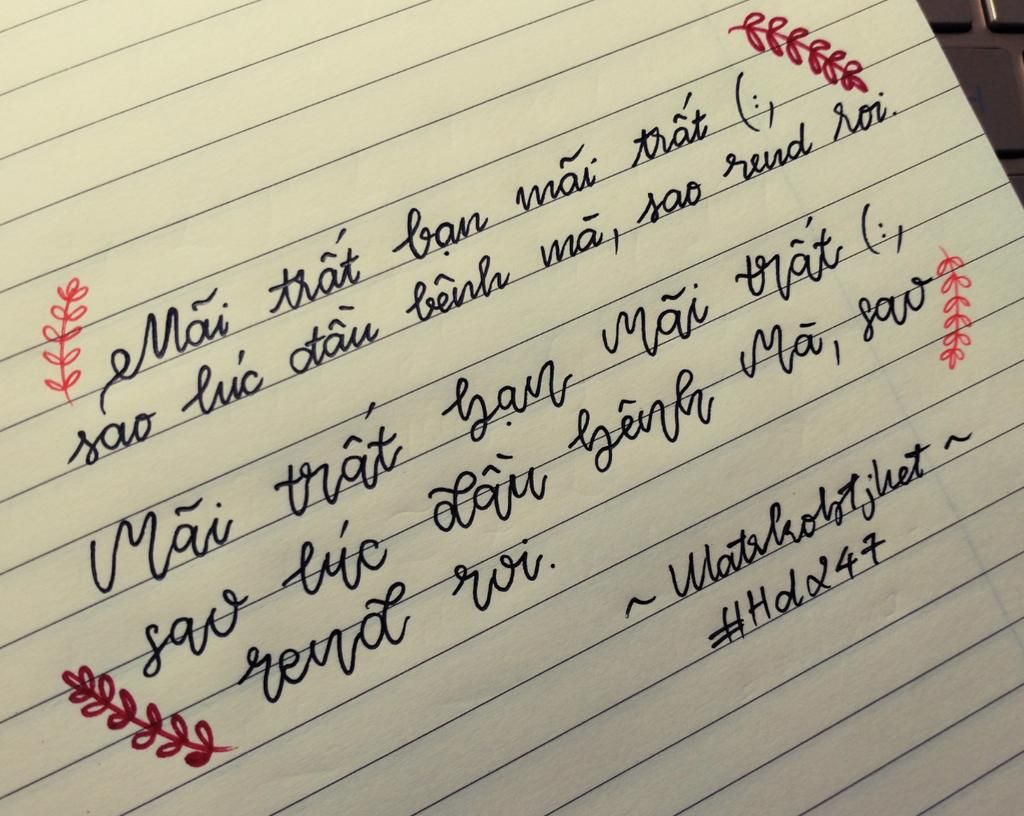 Mãi trất bạn mãi trất (:,
sao lúc đầu bênh mã, sao rend roi.
Mãi trất bạn Mãi trất (:,
sao lúc đầu bênh Mã, sao
rend roi.
~ Matskobtjhet ~
#Hd247